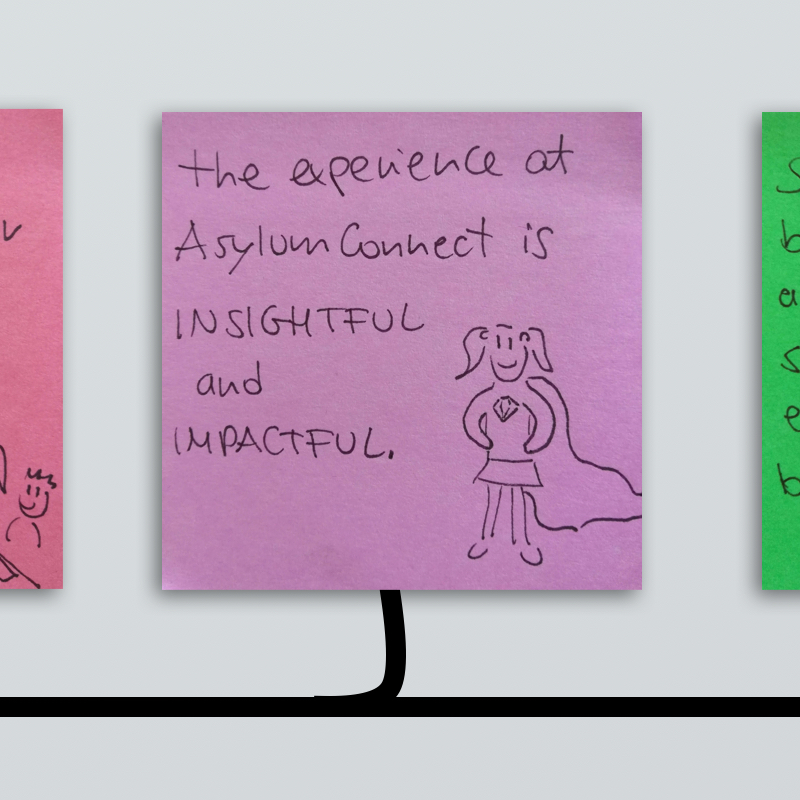 the experience at
Asylum Connect is
INSIGHTFUL
and
IMPACTFUL.